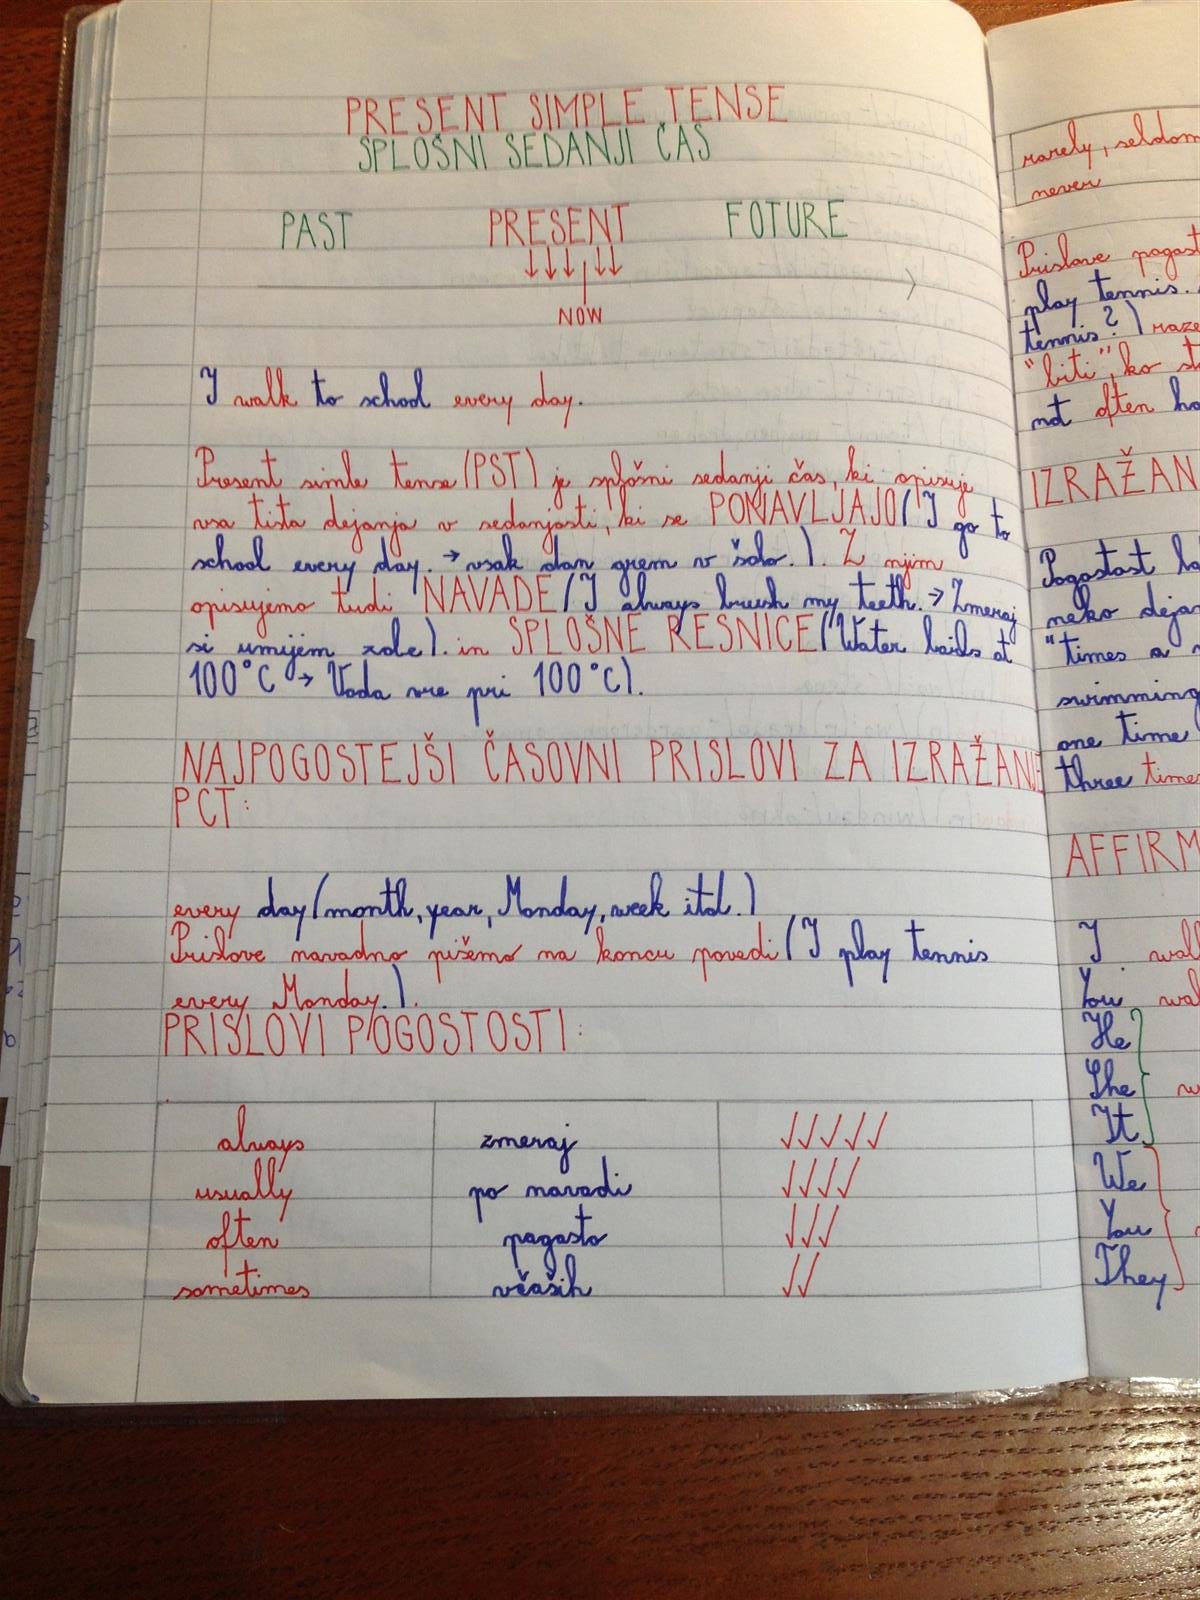 PRESENT SIMPLE TENSE
SPLOŠNI SEDANJI ČAS
PAST PRESENT FOTURE
↓↓↓↓↓
NOW
I walk to school every day.
Present simle tense (PST) je splošni sedanji čas, ki opisuje
vsa tista dejanja v sedanjosti, ki se PONAVLJAJO (I go to
school every day. → vsak dan grem v šolo.). Z njim
opisujemo tudi NAVADE (I always brush my teeth. → Zmeraj
si umijem zobe). in SPLOŠNE RESNICE (Water boils at
100°C → Voda vre pri 100°C).
NAJPOGOSTEJŠI ČASOVNI PRISLOVI ZA IZRAŽANJE
PCT:
every day (month, year, Monday, week itd.)
Prislove navadno pišemo na koncu povedi (I play tennis
every Monday.).
PRISLOVI POGOSTOSTI:
always zmeraj √√√√√
usually po navadi √√√√
often pogosto √√√
sometimes včasih √√
rarely, seldom
never
Prislove pogost
play tennis.
tennis?) raze
"biti", ko st
not often ha
IZRAŽAN
Pogostost
neko dejan
"times a
swimming
one time
three times
AFFIRM
I wal
You wal
He
She
It
We
You
They